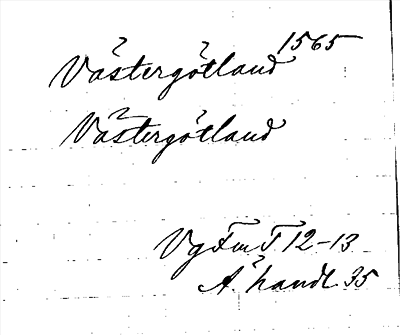 Västergötland 1565
Västergötland
VgFmT 12-13
A. handl. 35